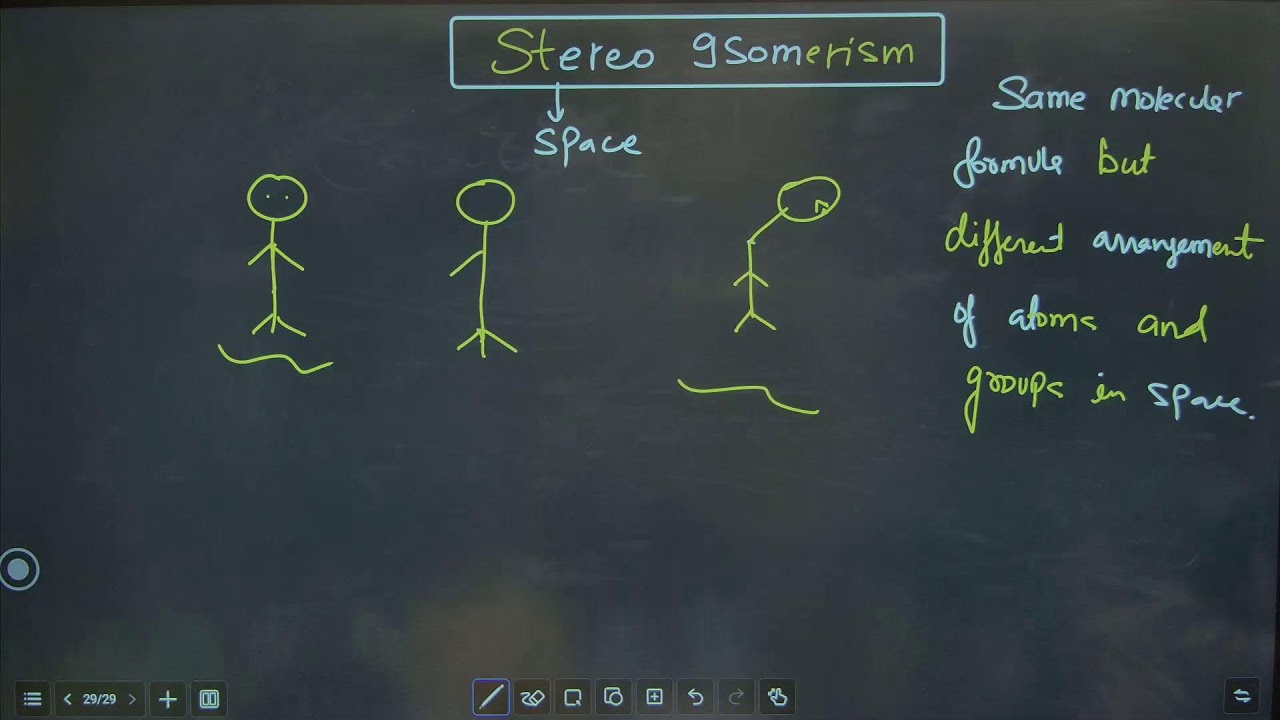 Stereo Isomerism
space
Same molecular
formule but
different arrangement
of atoms and
groups in space.
29/29